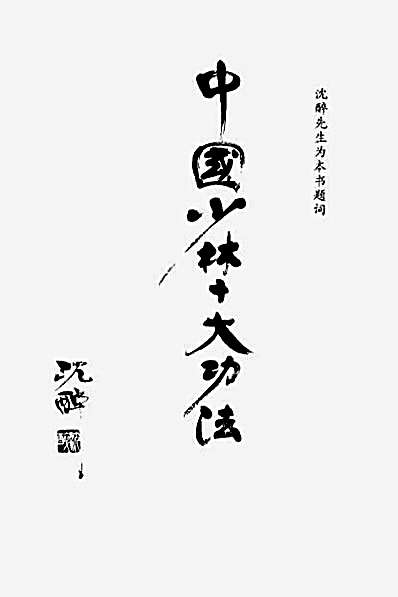 沈醉先生为本书题词
中國少林十大功法
沈醉